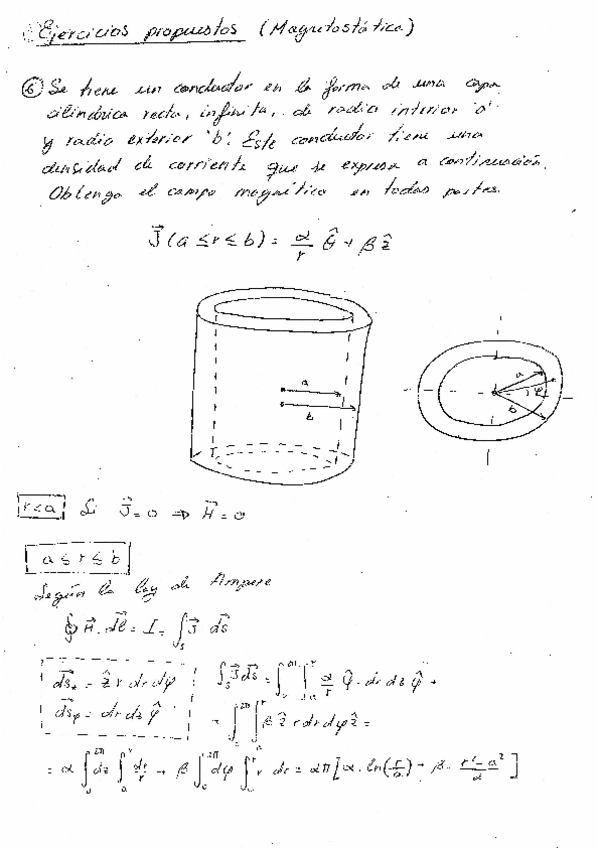 Ejercicios propuestos (Magnetostática)
⑥ Se tiene un conductor en la forma de una capa
cilíndrica recta, infinita, de radio interior 'a'
y radio exterior 'b'. Este conductor tiene una
densidad de corriente que se expresa a continuación.
Obtenga el campo magnético en todas partes.
J⃗ (a ≤ r ≤ b) = α/r θ̂ + β ẑ
a
b
a
φ
b
r<a Si J⃗ = 0 ⇒ H⃗ = 0
a ≤ r ≤ b
Según la ley de Ampere
∮ H⃗ · dl⃗ = I = ∫_s J⃗ ds⃗
ds⃗_z = ẑ r dr dφ
ds⃗_φ = dr dz φ̂
∫_s J⃗ ds⃗ = ∫_0^{2π} ∫_a^r α/r φ̂ · dr dz φ̂ +
+ ∫_0^{2π} ∫_a^r β ẑ r dr dφ ẑ =
= α ∫_0^{2π} dz ∫_a^r dr/r + β ∫_0^{2π} dφ ∫_a^r r dr = 2π [α · ln(r/a) + β · (r² - a²)/2]